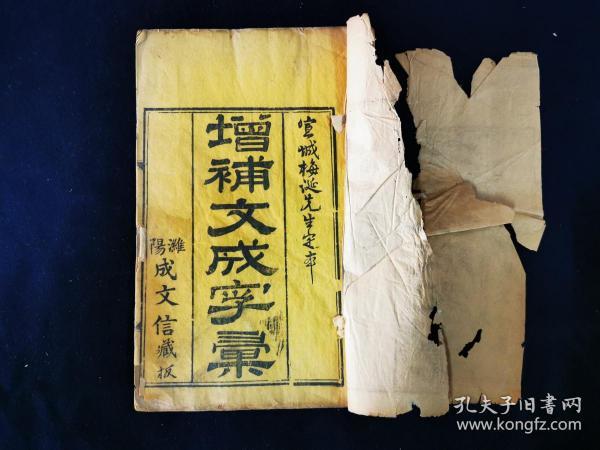 宣城梅誕先生定本
增補文成字彙
濰陽
成文信藏板
孔夫子旧书网
www.kongfz.com